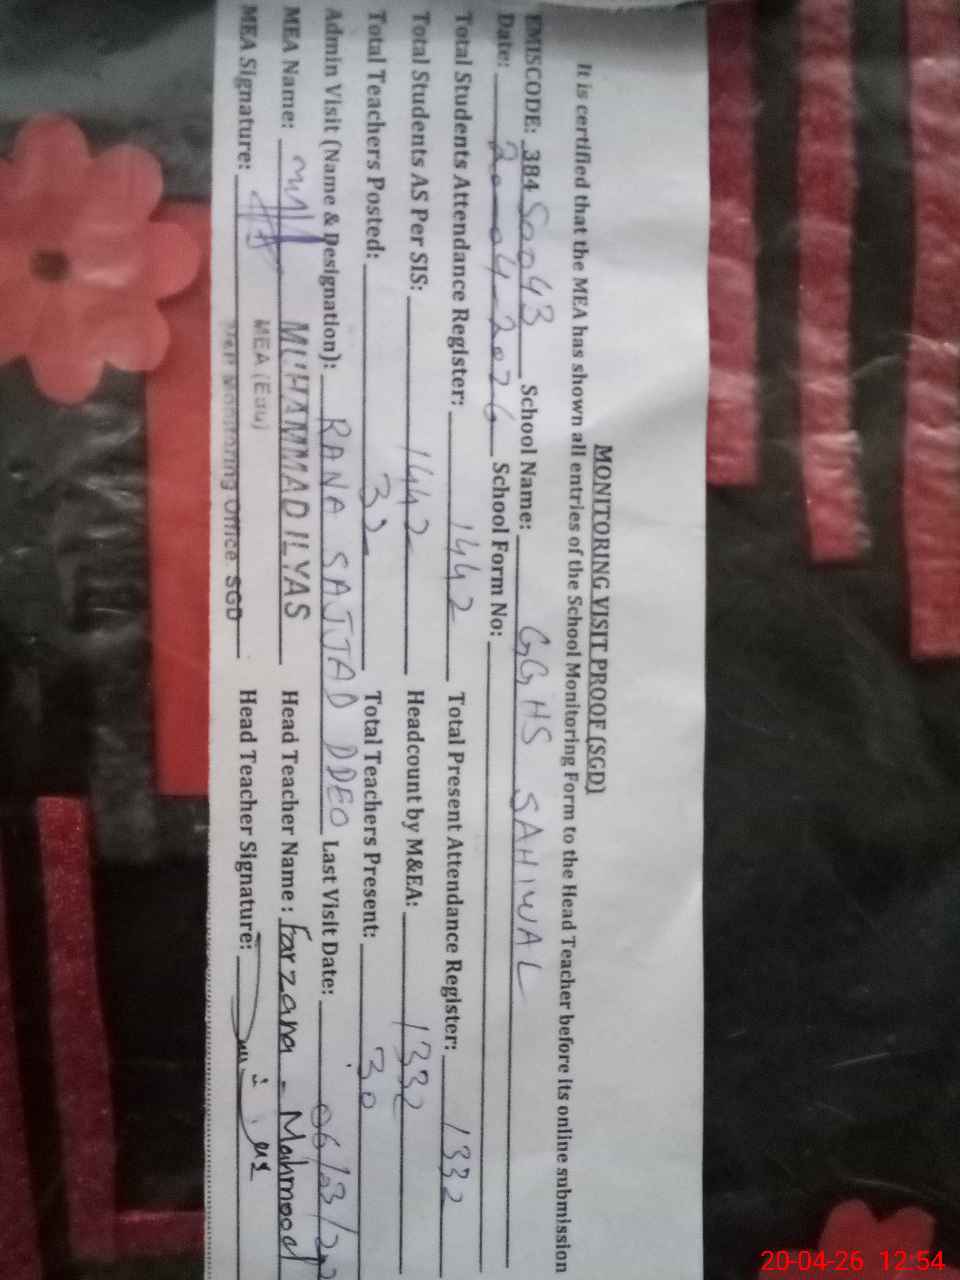 MONITORING VISIT PROOF (SGD)
It is certified that the MEA has shown all entries of the School Monitoring Form to the Head Teacher before its online submission
EMISCODE: 38450043 School Name: GGHS SAHIWAL
Date: 20-04-2026 School Form No:
Total Students Attendance Register: 1442 Total Present Attendance Register: 1332
Total Students AS Per SIS: 1442 Headcount by M&EA: 1332
Total Teachers Posted: 32 Total Teachers Present: 30
Admin Visit (Name & Designation): RANA SAJJAD DDEO Last Visit Date: 06/03/
MEA Name: MUHAMMAD ILYAS Head Teacher Name: Farzana - Mahmood
MEA (Edu)
MEA Signature: Monitoring Office SGD Head Teacher Signature:
20-04-26 12:54